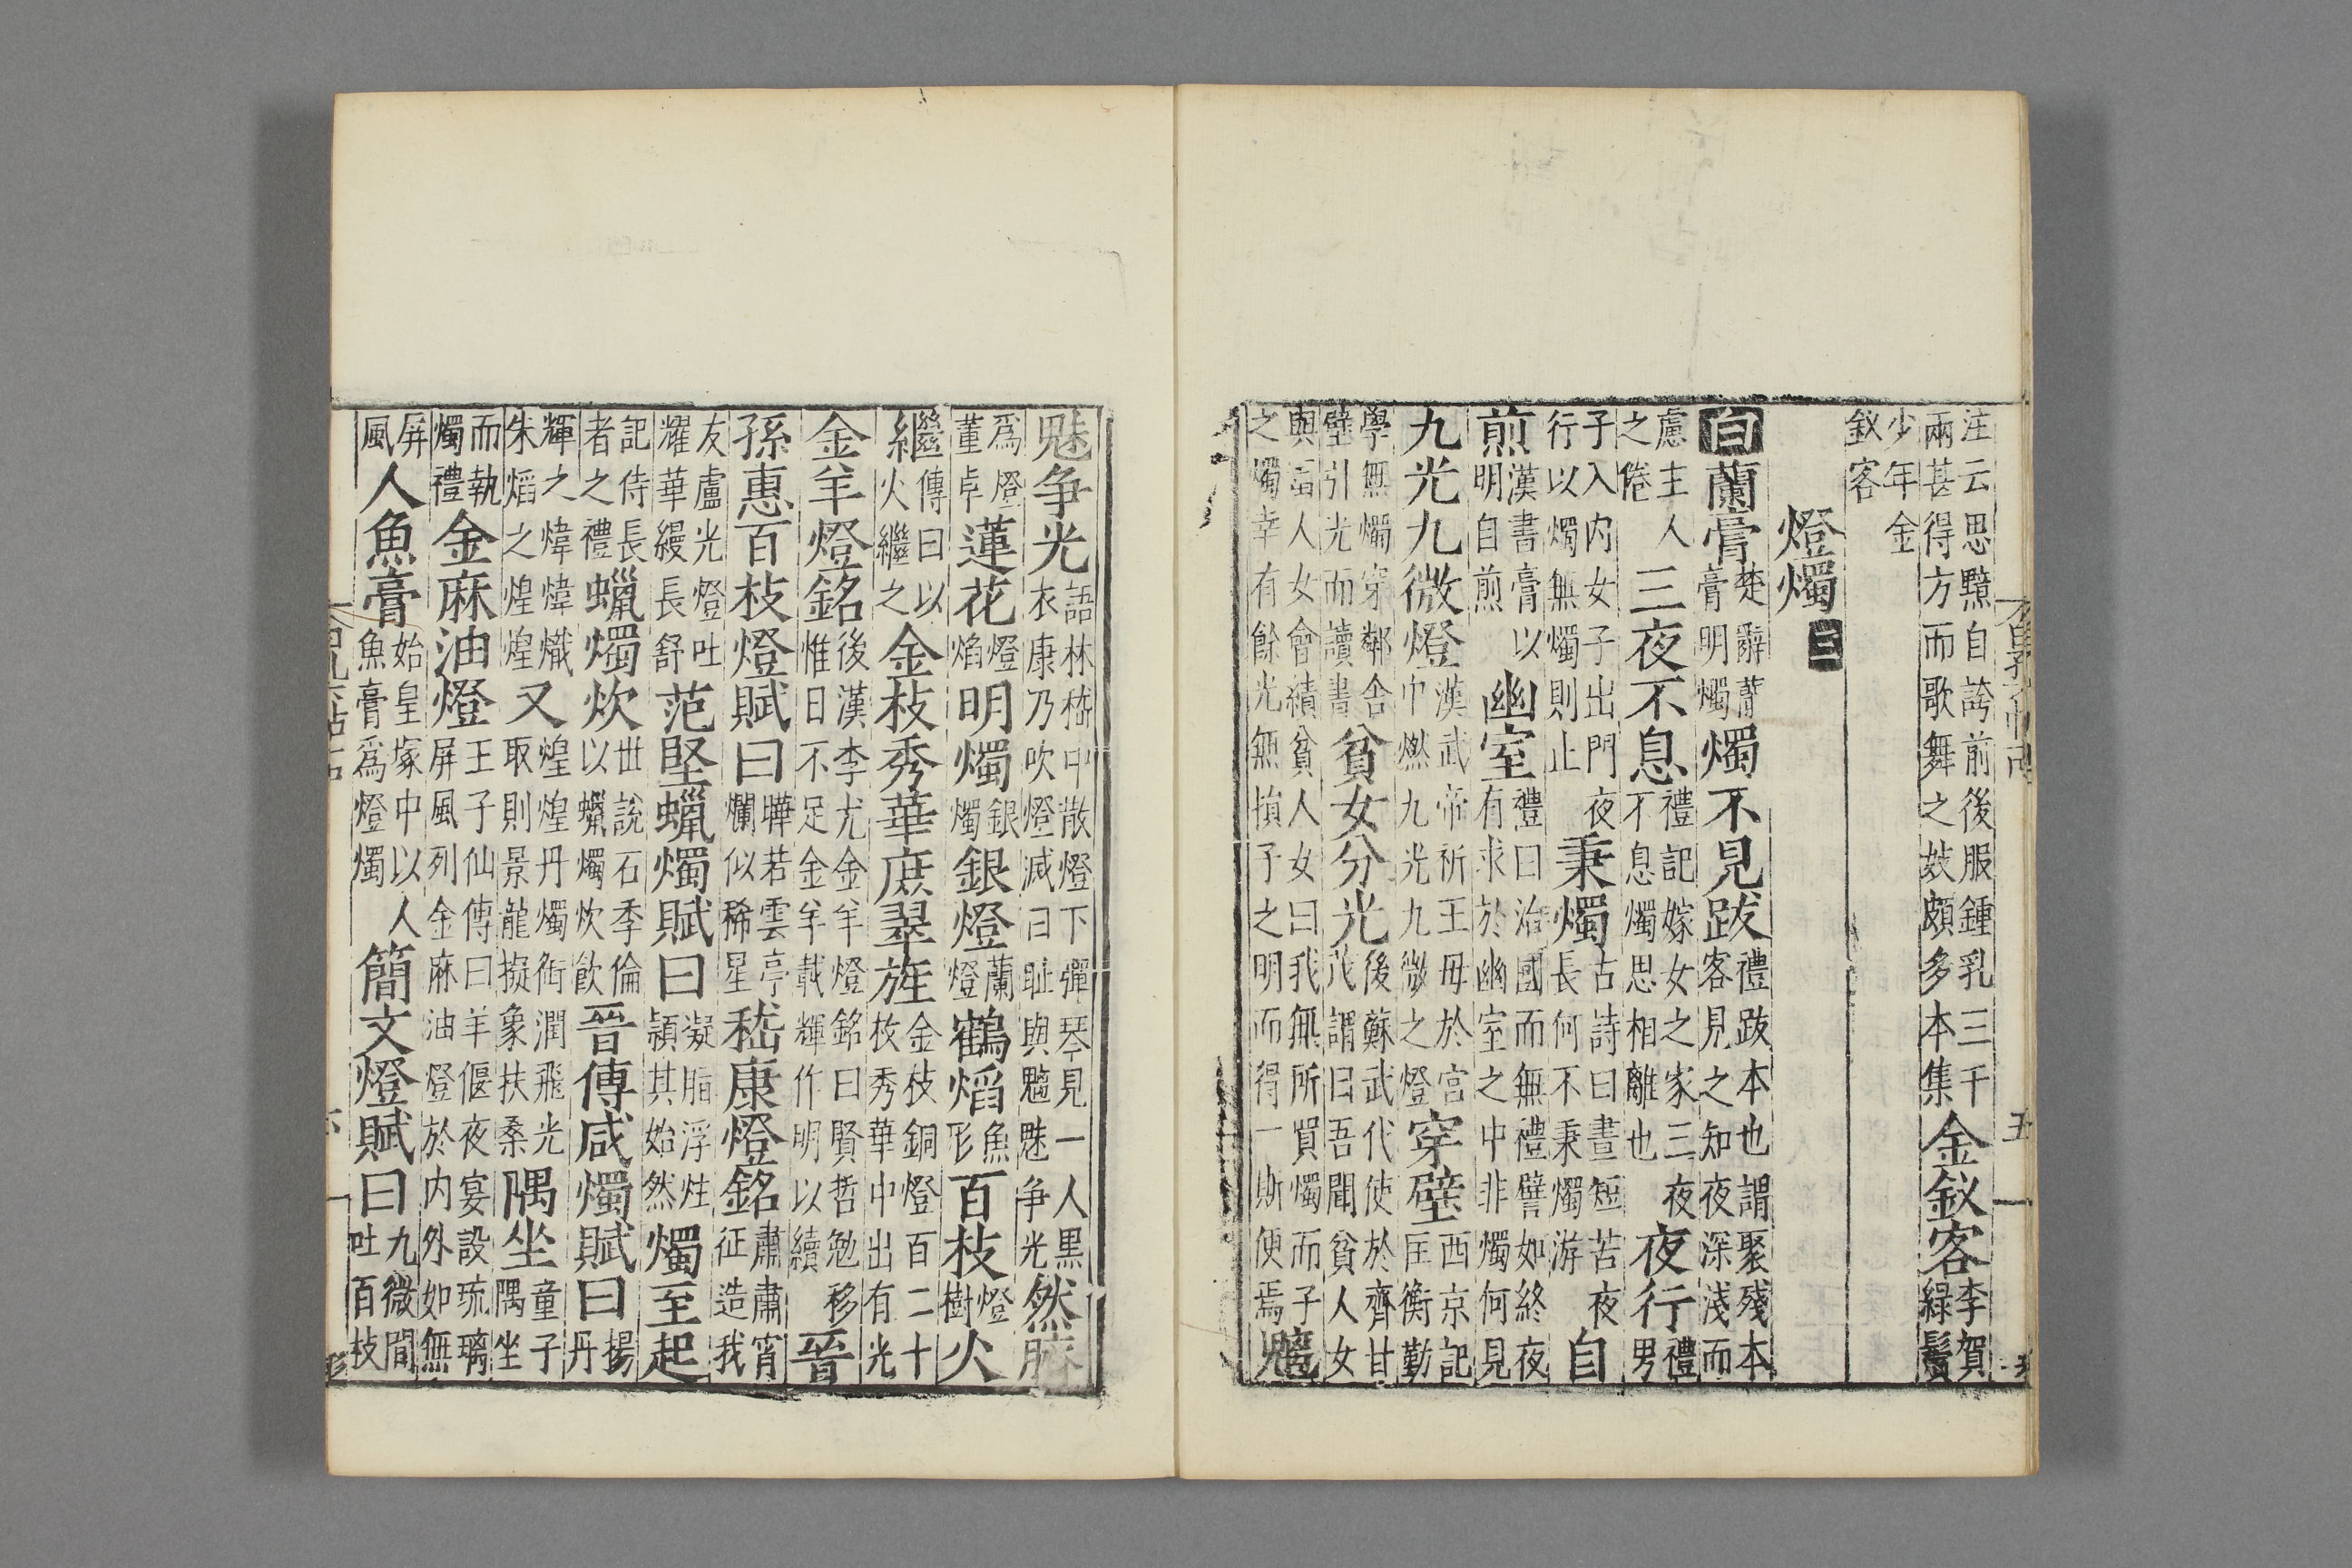 注云思黯自誇前後服鍾乳三千
兩甚得方而歌舞之妓頗多本集金釵客李賀綠鬢
少年金
釵客
燈燭三
白蘭膏楚辭蘭膏明燭燭不見跋禮跋本也謂聚殘本客見之知夜深淺而
慮主人之倦三夜不息禮記嫁女之家三夜不息燭思相離也夜行禮男
子入内女子出門夜行以燭無燭則止秉燭古詩曰晝短苦夜長何不秉燭游自
煎漢書膏以明自煎幽室禮曰治國而無禮譬如終夜有求於幽室之中非燭何見
九光九微燈漢武帝祈王母於宫中燃九光九微之燈穿壁西京記匡衡勤
學無燭穿鄰舍壁引光而讀書貧女分光後蘇武代使於齊甘茂謂曰吾聞貧人女
與富人女會績貧人女曰我無所買燭而子之燭幸有餘光無損子之明而得一斯便焉魑
魅争光語林嵇中散燈下彈琴見一人黑衣康乃吹燈滅曰耻與魑魅争光然臍
爲燈董卓蓮花燈焰明燭銀燭銀燈蘭燈鶴熖魚形百枝燈樹火
繼繼傳曰以火繼之金枝秀華庶翠旌金枝銅燈百二十枚秀華中出有光
金羊燈銘後漢李尤金羊燈銘曰賢哲勉務惟日不足金羊載輝作明以續晉
孫惠百枝燈賦曰曄若雲亭爛似稀星嵇康燈銘肅肅宵征造我
友盧光燈吐耀華縵長舒范堅蠟燭賦曰凝脂浮炷頴其始然燭至起
記侍長者之禮蠟燭炊世說石季倫以蠟燭炊飲晉傅咸燭賦曰揚丹
輝之煒煒熾朱熖之煌煌又煌煌丹燭衒潤飛光取則景龍擬象扶桑隅坐童子隅坐
而執燭禮金麻油燈王子仙傳曰羊偃夜宴設琉璃屏風列金麻油燈於内外如無
屏風人魚膏始皇塚中以人魚膏爲燈燭簡文燈賦曰九微間吐百枝